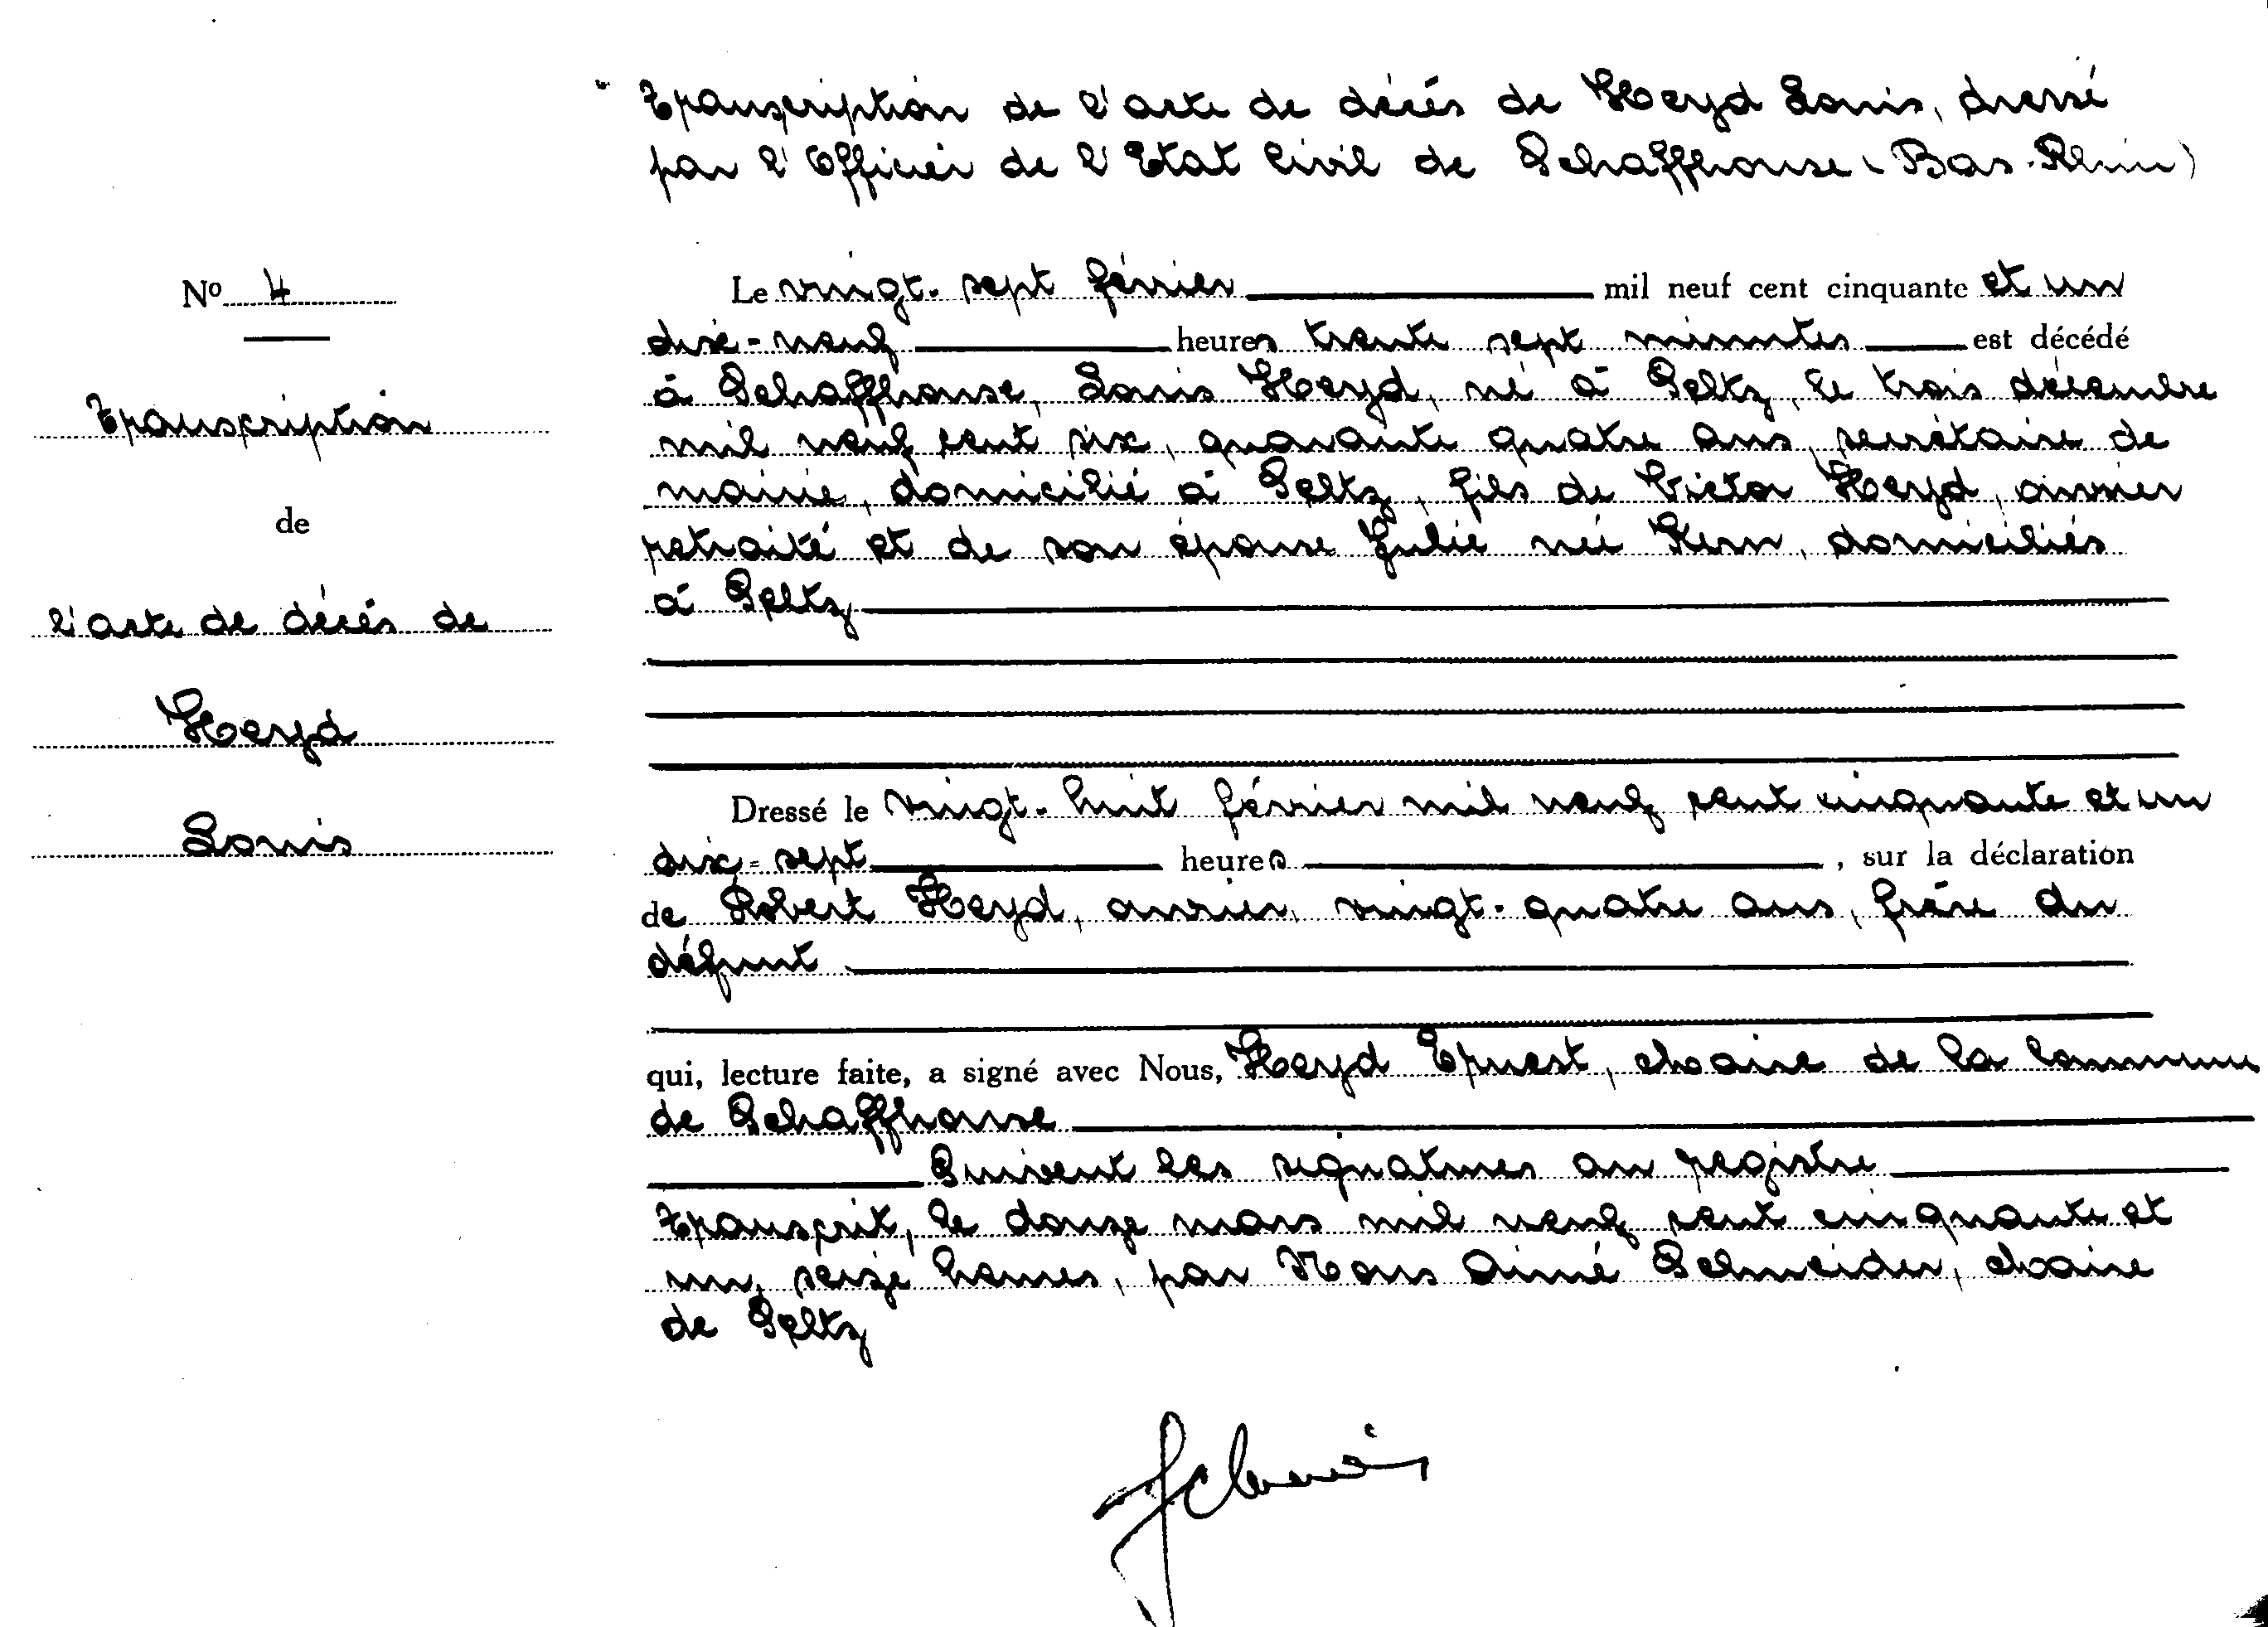 Transcription de l'acte de décés de Heyd Louis, dressé
par l'Officier de l'Etat Civil de Schaffhouse (Bas-Rhin)
Nº 4
Transcription
de
l'acte de décés de
Heyd
Louis
Le vingt-sept février mil neuf cent cinquante et un
dix-neuf heures trente sept minutes est décédé
à Schaffhouse, Louis Heyd, né à Seltz, le trois décembre
mil neuf cent six, quarante quatre ans, secrétaire de
mairie, domicilié à Seltz, fils de Victor Heyd, ouvrier
retraité et de son épouse Julie née Kern, domiciliés
à Seltz
Dressé le vingt-huit février mil neuf cent cinquante et un
dix-sept heures, sur la déclaration
de Robert Heyd, ouvrier, vingt-quatre ans, frère du
défunt
qui, lecture faite, a signé avec Nous, Heyd Ernest, Maire de la Commune
de Schaffhouse
Suivent les signatures au registre
Transcrit, le douze mars mil neuf cent cinquante et
un, seize heures, par Nous Aimé Schneider, Maire
de Seltz